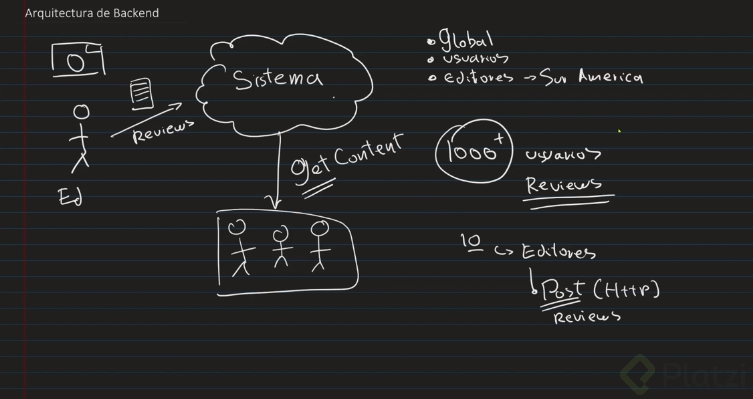 Arquitectura de Backend
Sistema
Reviews
Ed
get Content
• Global
• usuarios
• editores → Sur America
1000+ usuarios
Reviews
10 Editores
Post (Http)
Reviews
Platzi